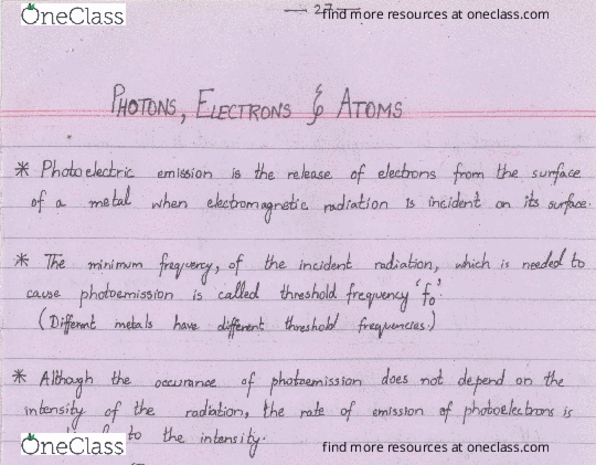 OneClass
27
find more resources at oneclass.com
PHOTONS, ELECTRONS & ATOMS
* Photoelectric emission is the release of electrons from the surface
of a metal when electromagnetic radiation is incident on its surface.
* The minimum frequency, of the incident radiation, which is needed to
cause photoemission is called threshold frequency 'f₀'.
(Different metals have different threshold frequencies.)
* Although the occurance of photoemission does not depend on the
intensity of the radiation, the rate of emission of photoelectrons is
to the intensity.
OneClass
find more resources at oneclass.com